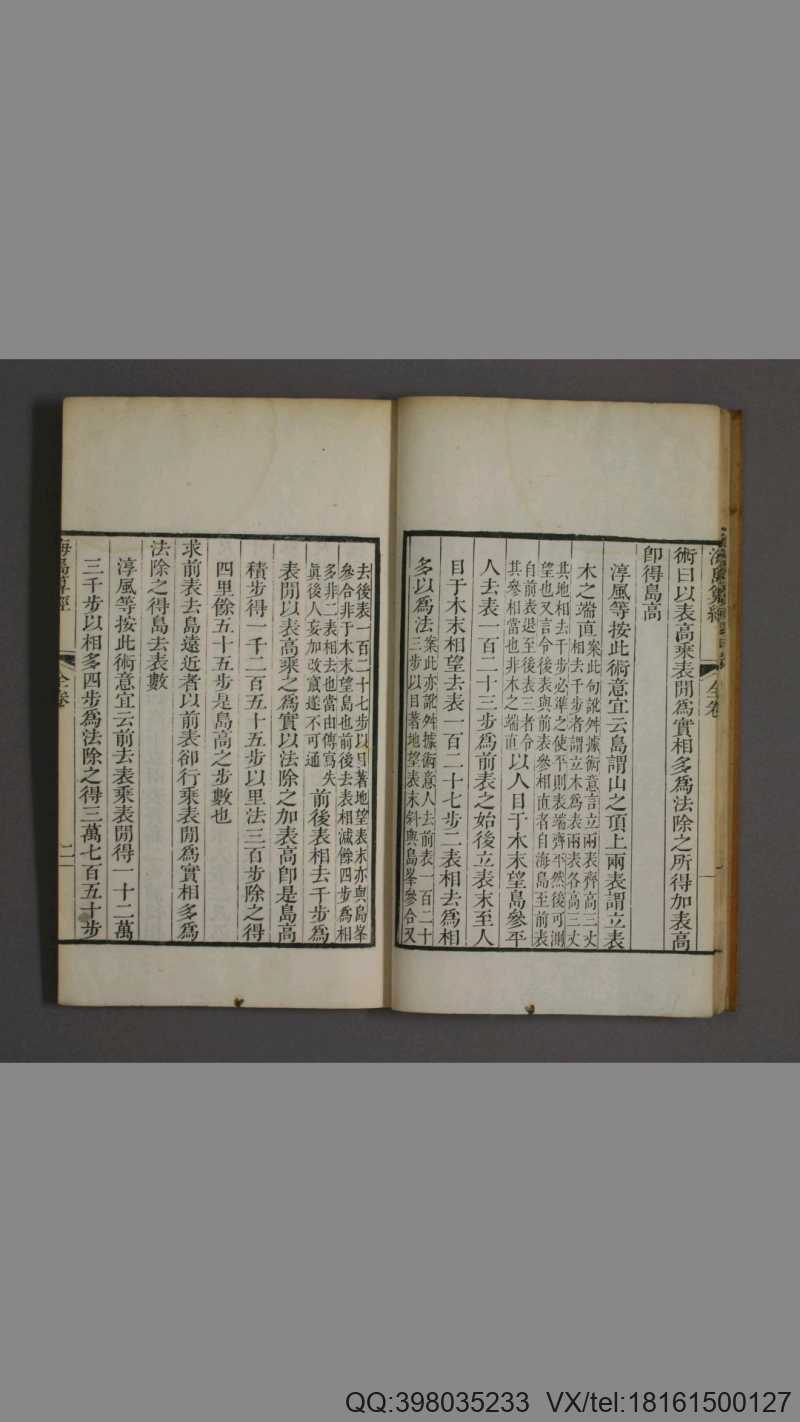 海島算經
全卷
一
術曰以表高乘表閒爲實相多爲法除之所得加表高
卽得島高
淳風等按此術意宜云島謂山之頂上兩表謂立表
木之端直案此句訛舛據術意言立兩表齊高三丈
相去千步者謂立木爲表兩表各高三丈
其地相去千步必準之使平則表端齊平然後可測
望也又言令後表與前表參相直者自海島至前表
自前表退至後表三者令
其參相當也非木之端直以人目于木末望島參平
人去表一百二十三步爲前表之始後立表末至人
目于木末相望去表一百二十七步二表相去爲相
多以爲法案此亦訛舛據術意人去前表一百二十
三步以目著地望表末斜與島峯參合又
去後表一百二十七步以目著地望表末亦與島峯
參合非于木末望島也前後去表相減餘四步爲相
多非二表相去也當由傳寫失
眞後人妄加改竄遂不可通前後表相去千步爲
表閒以表高乘之爲實以法除之加表高卽是島高
積步得一千二百五十五步以里法三百步除之得
四里餘五十五步是島高之步數也
求前表去島遠近者以前表卻行乘表閒爲實相多爲
法除之得島去表數
淳風等按此術意宜云前去表乘表閒得一十二萬
三千步以相多四步爲法除之得三萬七百五十步
海島算經
全卷
二
QQ:398035233 VX/tel:18161500127